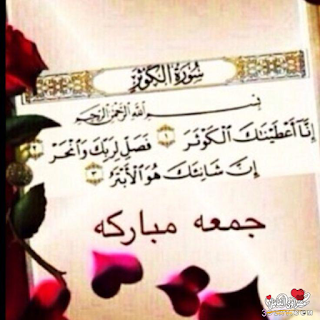 سُورَةُ الكَوْثَرِ
بِسْمِ اللَّهِ الرَّحْمَٰنِ الرَّحِيمِ
إِنَّا أَعْطَيْنَاكَ الْكَوْثَرَ ١ فَصَلِّ لِرَبِّكَ وَانْحَرْ ٢
إِنَّ شَانِئَكَ هُوَ الْأَبْتَرُ ٣
جمعه مباركه